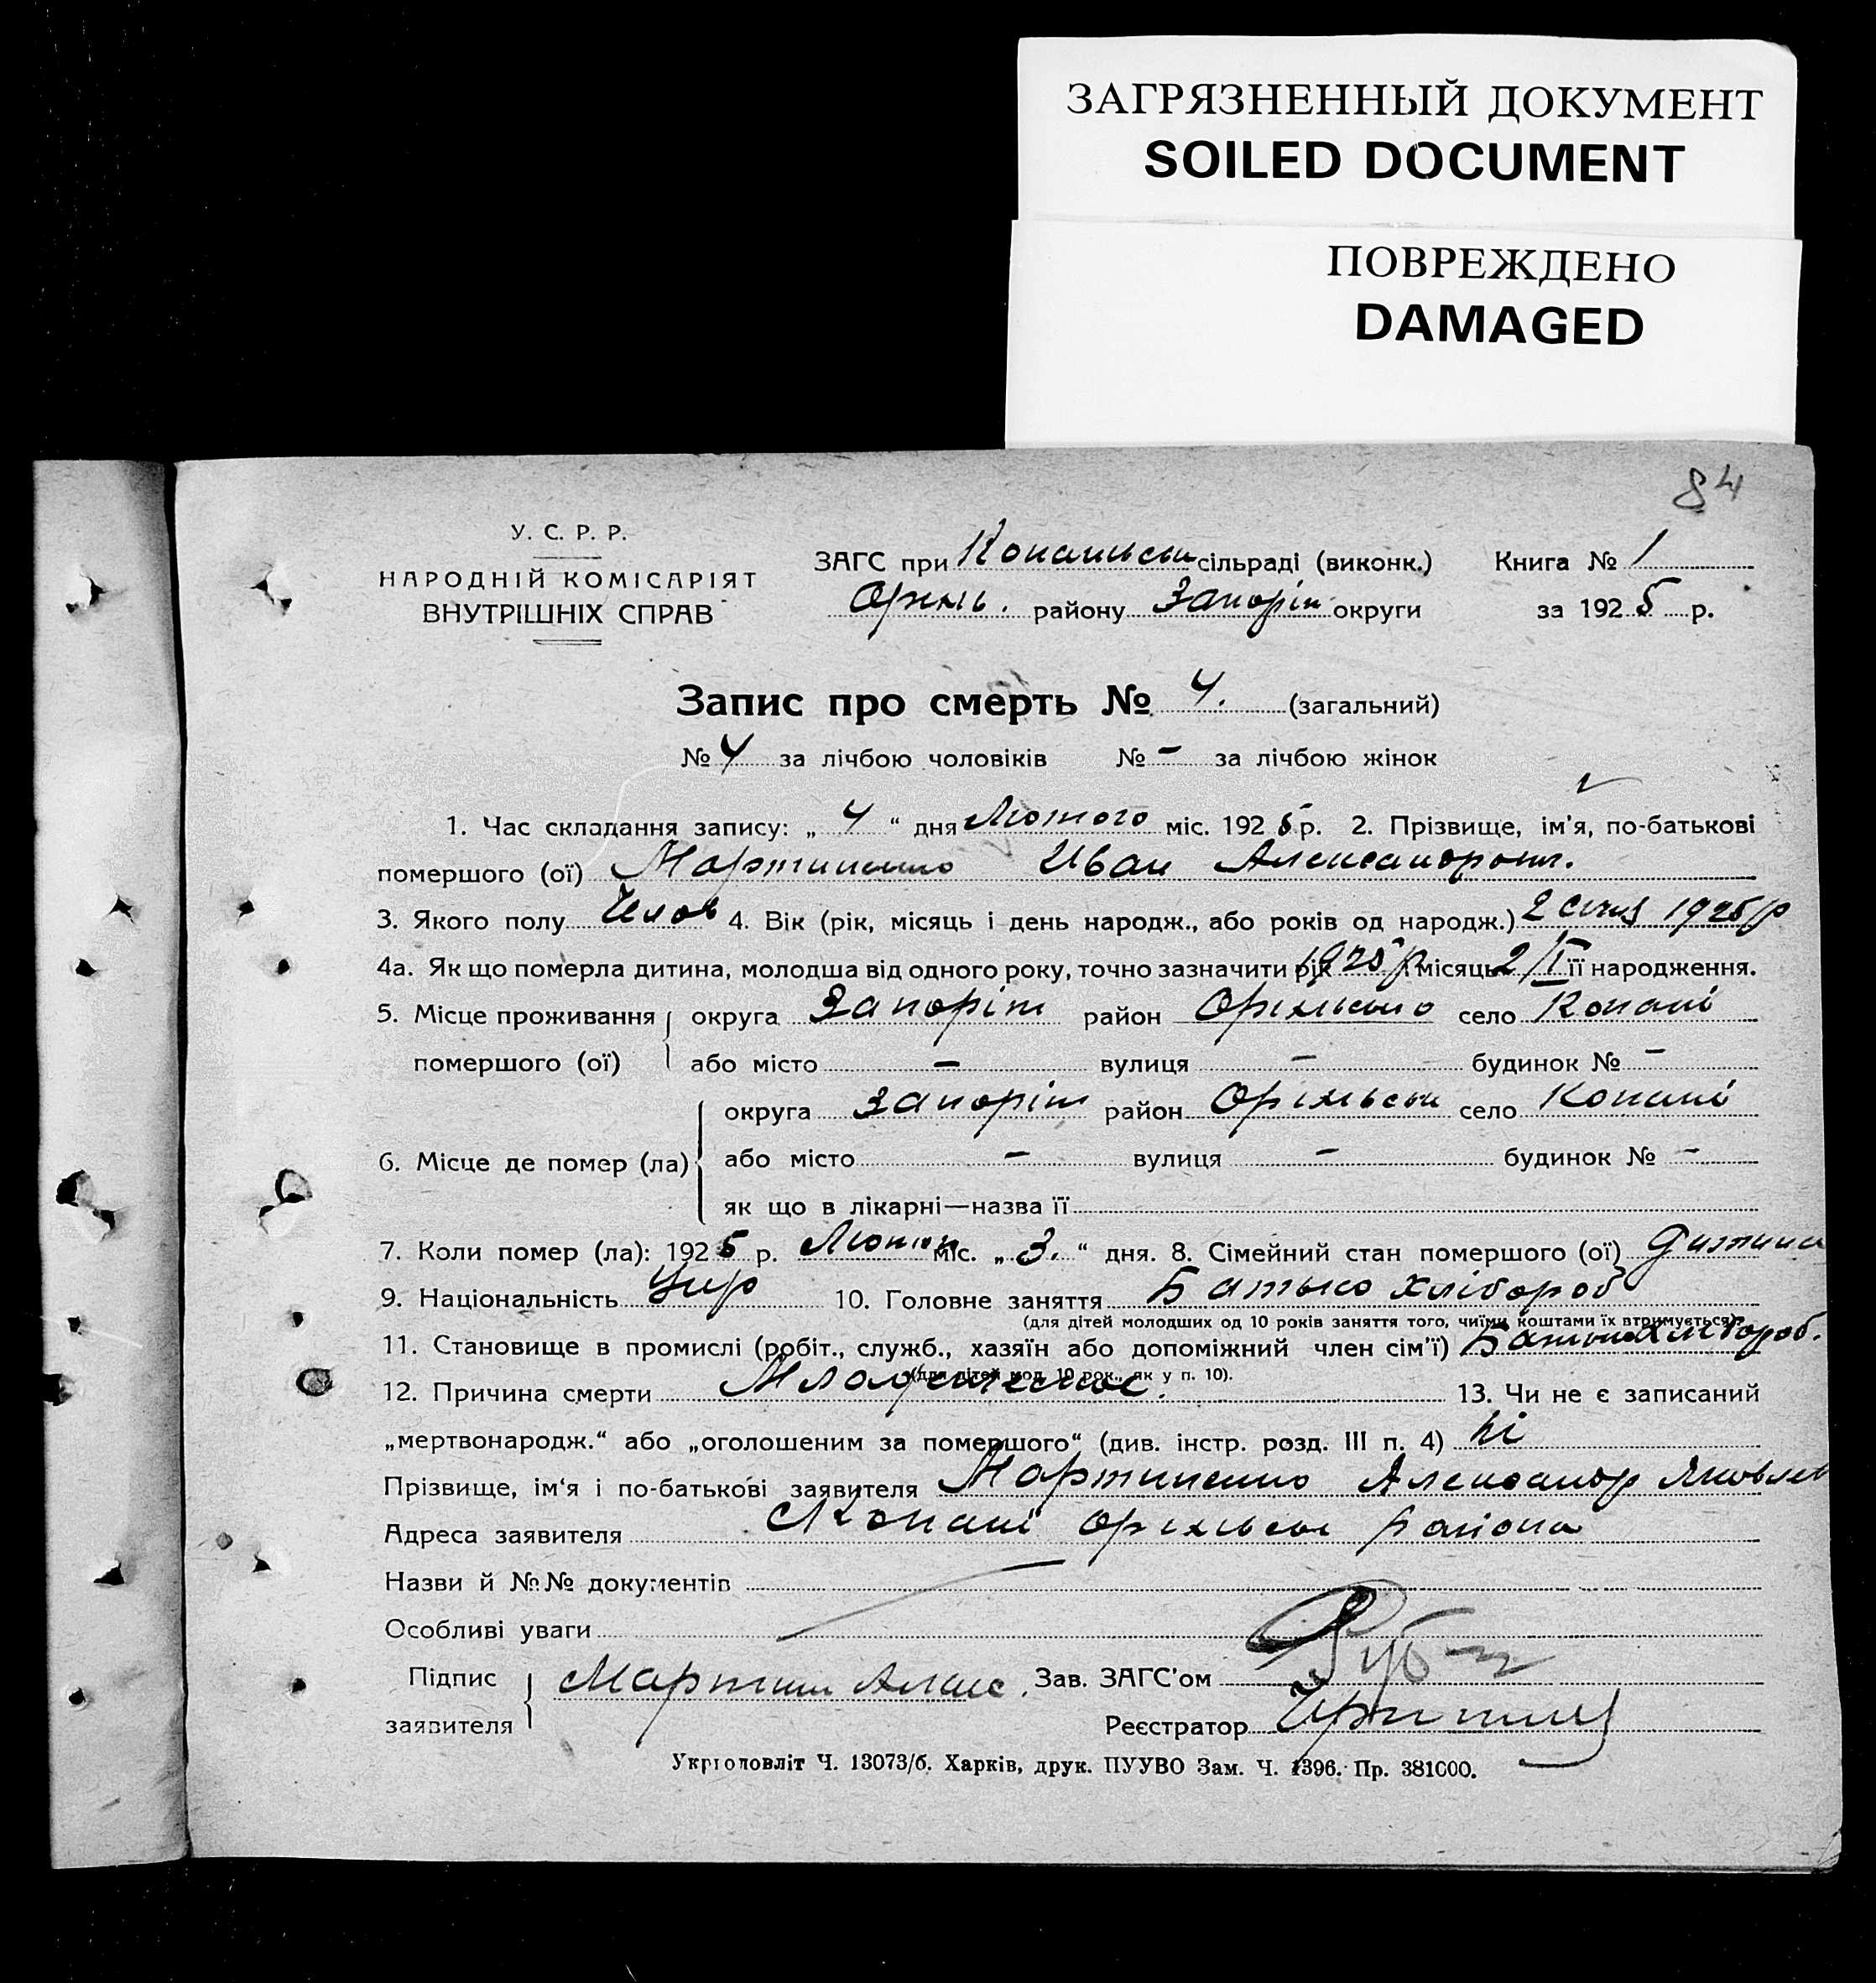 ЗАГРЯЗНЕННЫЙ ДОКУМЕНТ
SOILED DOCUMENT
ПОВРЕЖДЕНО
DAMAGED
84
У. С. Р. Р.
НАРОДНІЙ КОМІСАРІЯТ
ВНУТРІШНІХ СПРАВ
ЗАГС при Копанськ сільраді (виконк.) Книга № 1
району Запоріж округи за 1925 р.
Запис про смерть № 4. (загальний)
№ 4 за лічбою чоловіків № - за лічбою жінок
1. Час складання запису: „ 4 “ дня Лютого міс. 1925 р. 2. Прізвище, ім'я, по-батькові
помершого (ої) Мартиненко Иван Александров.
3. Якого полу Челов 4. Вік (рік, місяць і день народж., або років од народж.) 2 січня 1925 р
4а. Як що померла дитина, молодша від одного року, точно зазначити рік 1925 р місяць 2/I її народження.
5. Місце проживання округа Запоріж район Оріхівсько село Копані
помершого (ої) або місто - вулиця - будинок № -
округа Запоріж район Оріхівськ село Копані
6. Місце де помер (ла) або місто - вулиця - будинок № -
як що в лікарні—назва її
7. Коли помер (ла): 1925 р. міс. „ 3. “ дня. 8. Сімейний стан помершого (ої) Дитина
9. Національність Укр 10. Головне заняття Батько хлібороб
(для дітей молодших од 10 років заняття того, чиїми коштами їх втримується)
11. Становище в промислі (робіт., служб., хазяїн або допоміжний член сім'ї) Батько хлібороб.
(для дітей мол. 10 рок., як у п. 10).
12. Причина смерти 13. Чи не є записаний
„мертвонародж.“ або „оголошеним за помершого“ (див. інстр. розд. III п. 4) ні
Прізвище, ім'я і по-батькові заявителя Мартиненко Александр Яковлев
Адреса заявителя Копані Оріхівськ Района
Назви й №№ документів
Особливі уваги
Підпис Мартин Алекс. Зав. ЗАГС'ом
заявителя Реєстратор
Укрголовліт Ч. 13073/б. Харків, друк. ПУУВО Зам. Ч. 1396. Пр. 381000.